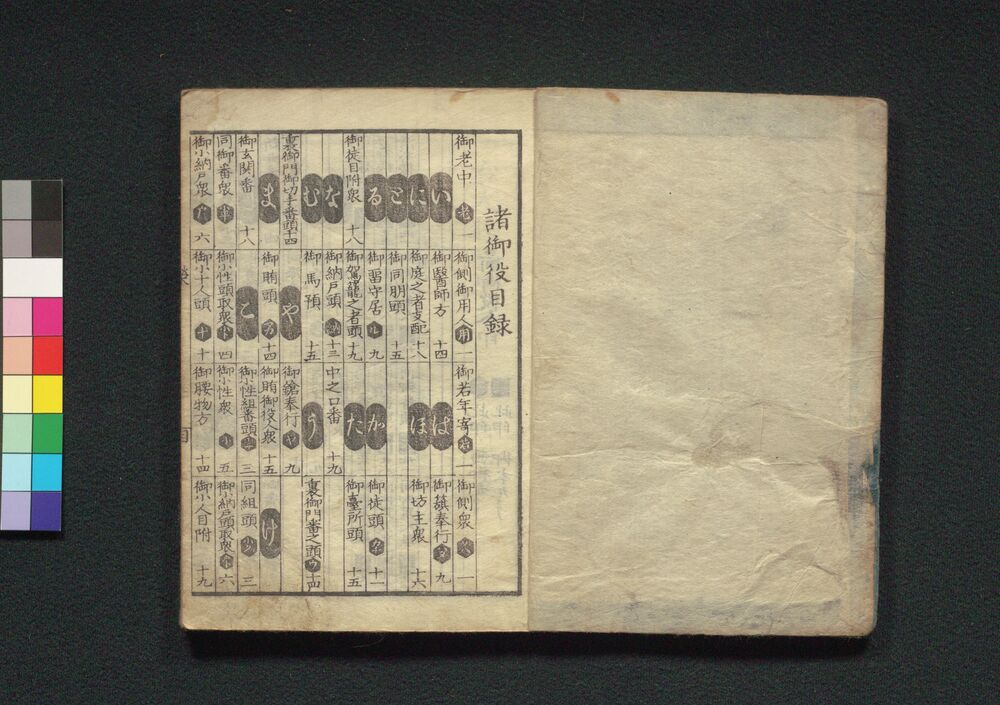 諸御役目録
御老中 老 一 御側御用人 用 一 御若年寄 若 一 御側衆 一
い 御醫師方 十四 ば 御籏奉行 九
に 御庭之者支配 十八 ほ 御坊主衆 十六
と 御同朋頭 十五
る 御留守居 ル 九 か 御徒頭 十一
御徒目附衆 十八 御駕籠之者頭 十九 た 御臺所頭 十五
な 御納戸頭 納 十三 中之口番 十九
む 御馬預 十五 う 裏御門番之頭 ウ 十四
裏御門御切手番頭 十四 や 御鎗奉行 ヤ 九
ま 御賄頭 十四 御賄御役人衆 十五 け
御玄関番 十八 こ 御小性組番頭 三 同組頭 三
同御番衆 御小性頭取衆 四 御小性衆 五 御小納戸頭取衆 六
御小納戸衆 六 御小十人頭 十 十 御腰物方 十四 御小人目附 十九
目